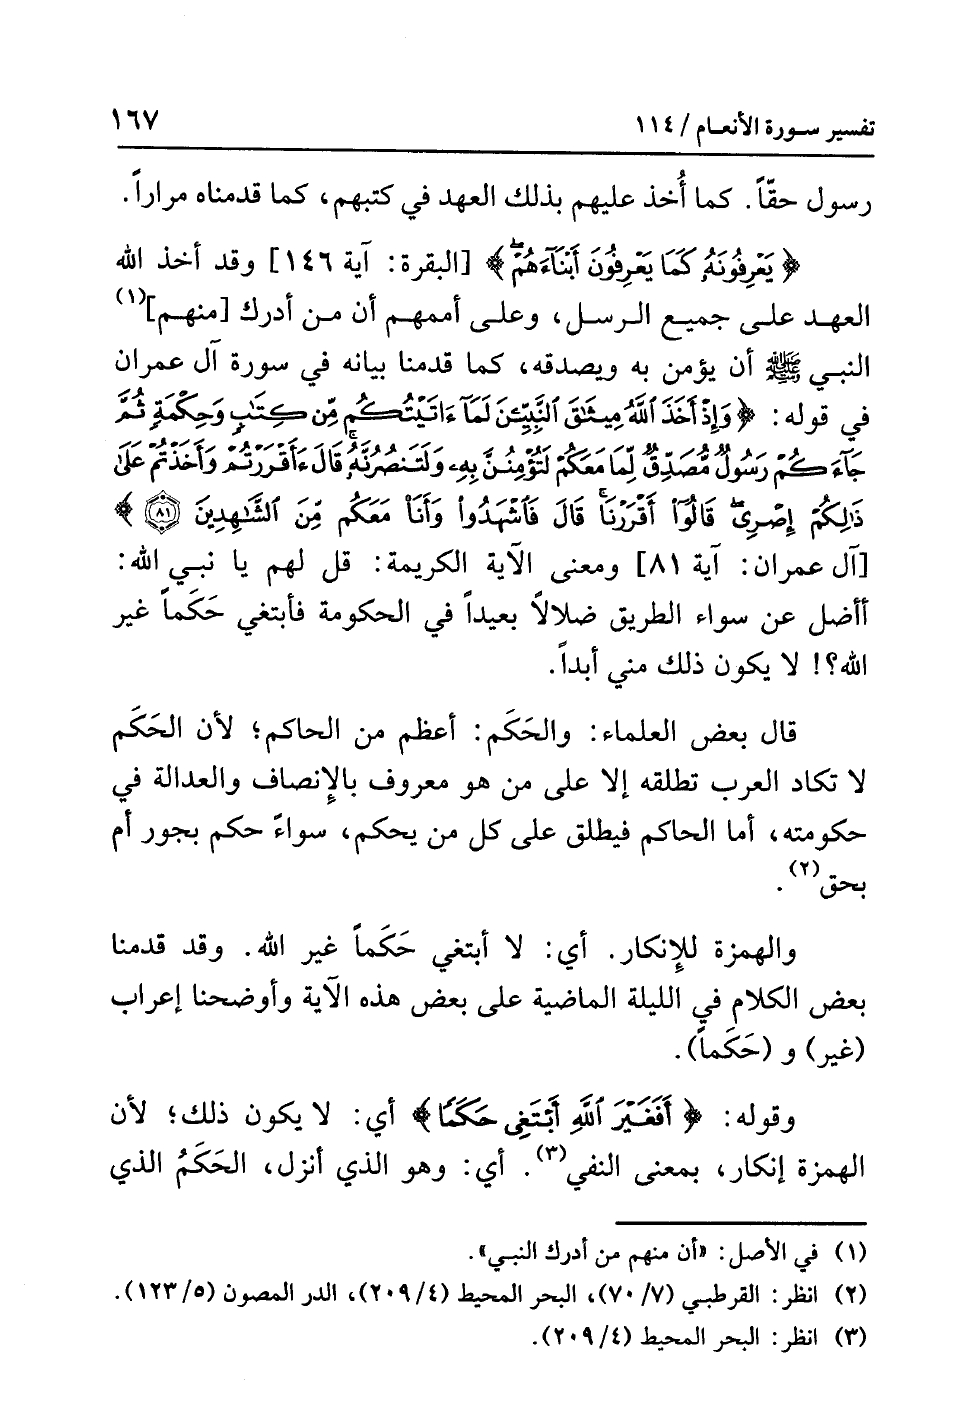 تفسير سورة الأنعام / ١١٤
١٦٧
رسول حقّاً. كما أُخذ عليهم بذلك العهد في كتبهم، كما قدمناه مراراً.
﴿ يَعْرِفُونَهُۥ كَمَا يَعْرِفُونَ أَبْنَآءَهُمْۖ ﴾ [البقرة: آية ١٤٦] وقد أخذ الله
العهد على جميع الرسل، وعلى أممهم أن من أدرك [منهم](١)
النبي ﷺ أن يؤمن به ويصدقه، كما قدمنا بيانه في سورة آل عمران
في قوله: ﴿ وَإِذْ أَخَذَ ٱللَّهُ مِيثَٰقَ ٱلنَّبِيِّـۧنَ لَمَآ ءَاتَيْتُكُم مِّن كِتَٰبٍ وَحِكْمَةٍ ثُمَّ
جَآءَكُمْ رَسُولٌ مُّصَدِّقٌ لِّمَا مَعَكُمْ لَتُؤْمِنُنَّ بِهِۦ وَلَتَنصُرُنَّهُۥۚ قَالَ ءَأَقْرَرْتُمْ وَأَخَذْتُمْ عَلَىٰ
ذَٰلِكُمْ إِصْرِيۖ قَالُوٓا۟ أَقْرَرْنَاۚ قَالَ فَٱشْهَدُوا۟ وَأَنَا۠ مَعَكُم مِّنَ ٱلشَّٰهِدِينَ ٨١ ﴾
[آل عمران: آية ٨١] ومعنى الآية الكريمة: قل لهم يا نبي الله:
أأضل عن سواء الطريق ضلالاً بعيداً في الحكومة فأبتغي حَكَماً غير
الله؟! لا يكون ذلك مني أبداً.
قال بعض العلماء: والحَكَم: أعظم من الحاكم؛ لأن الحَكَم
لا تكاد العرب تطلقه إلا على من هو معروف بالإنصاف والعدالة في
حكومته، أما الحاكم فيطلق على كل من يحكم، سواءً حكم بجور أم
بحق(٢).
والهمزة للإنكار. أي: لا أبتغي حَكَماً غير الله. وقد قدمنا
بعض الكلام في الليلة الماضية على بعض هذه الآية وأوضحنا إعراب
(غير) و (حَكَماً).
وقوله: ﴿ أَفَغَيْرَ ٱللَّهِ أَبْتَغِى حَكَمًا ﴾ أي: لا يكون ذلك؛ لأن
الهمزة إنكار، بمعنى النفي(٣). أي: وهو الذي أنزل، الحَكَمُ الذي
(١) في الأصل: «أن منهم من أدرك النبي».
(٢) انظر: القرطبي (٧/ ٧٠)، البحر المحيط (٤/ ٢٠٩)، الدر المصون (٥/ ١٢٣).
(٣) انظر: البحر المحيط (٤/ ٢٠٩).